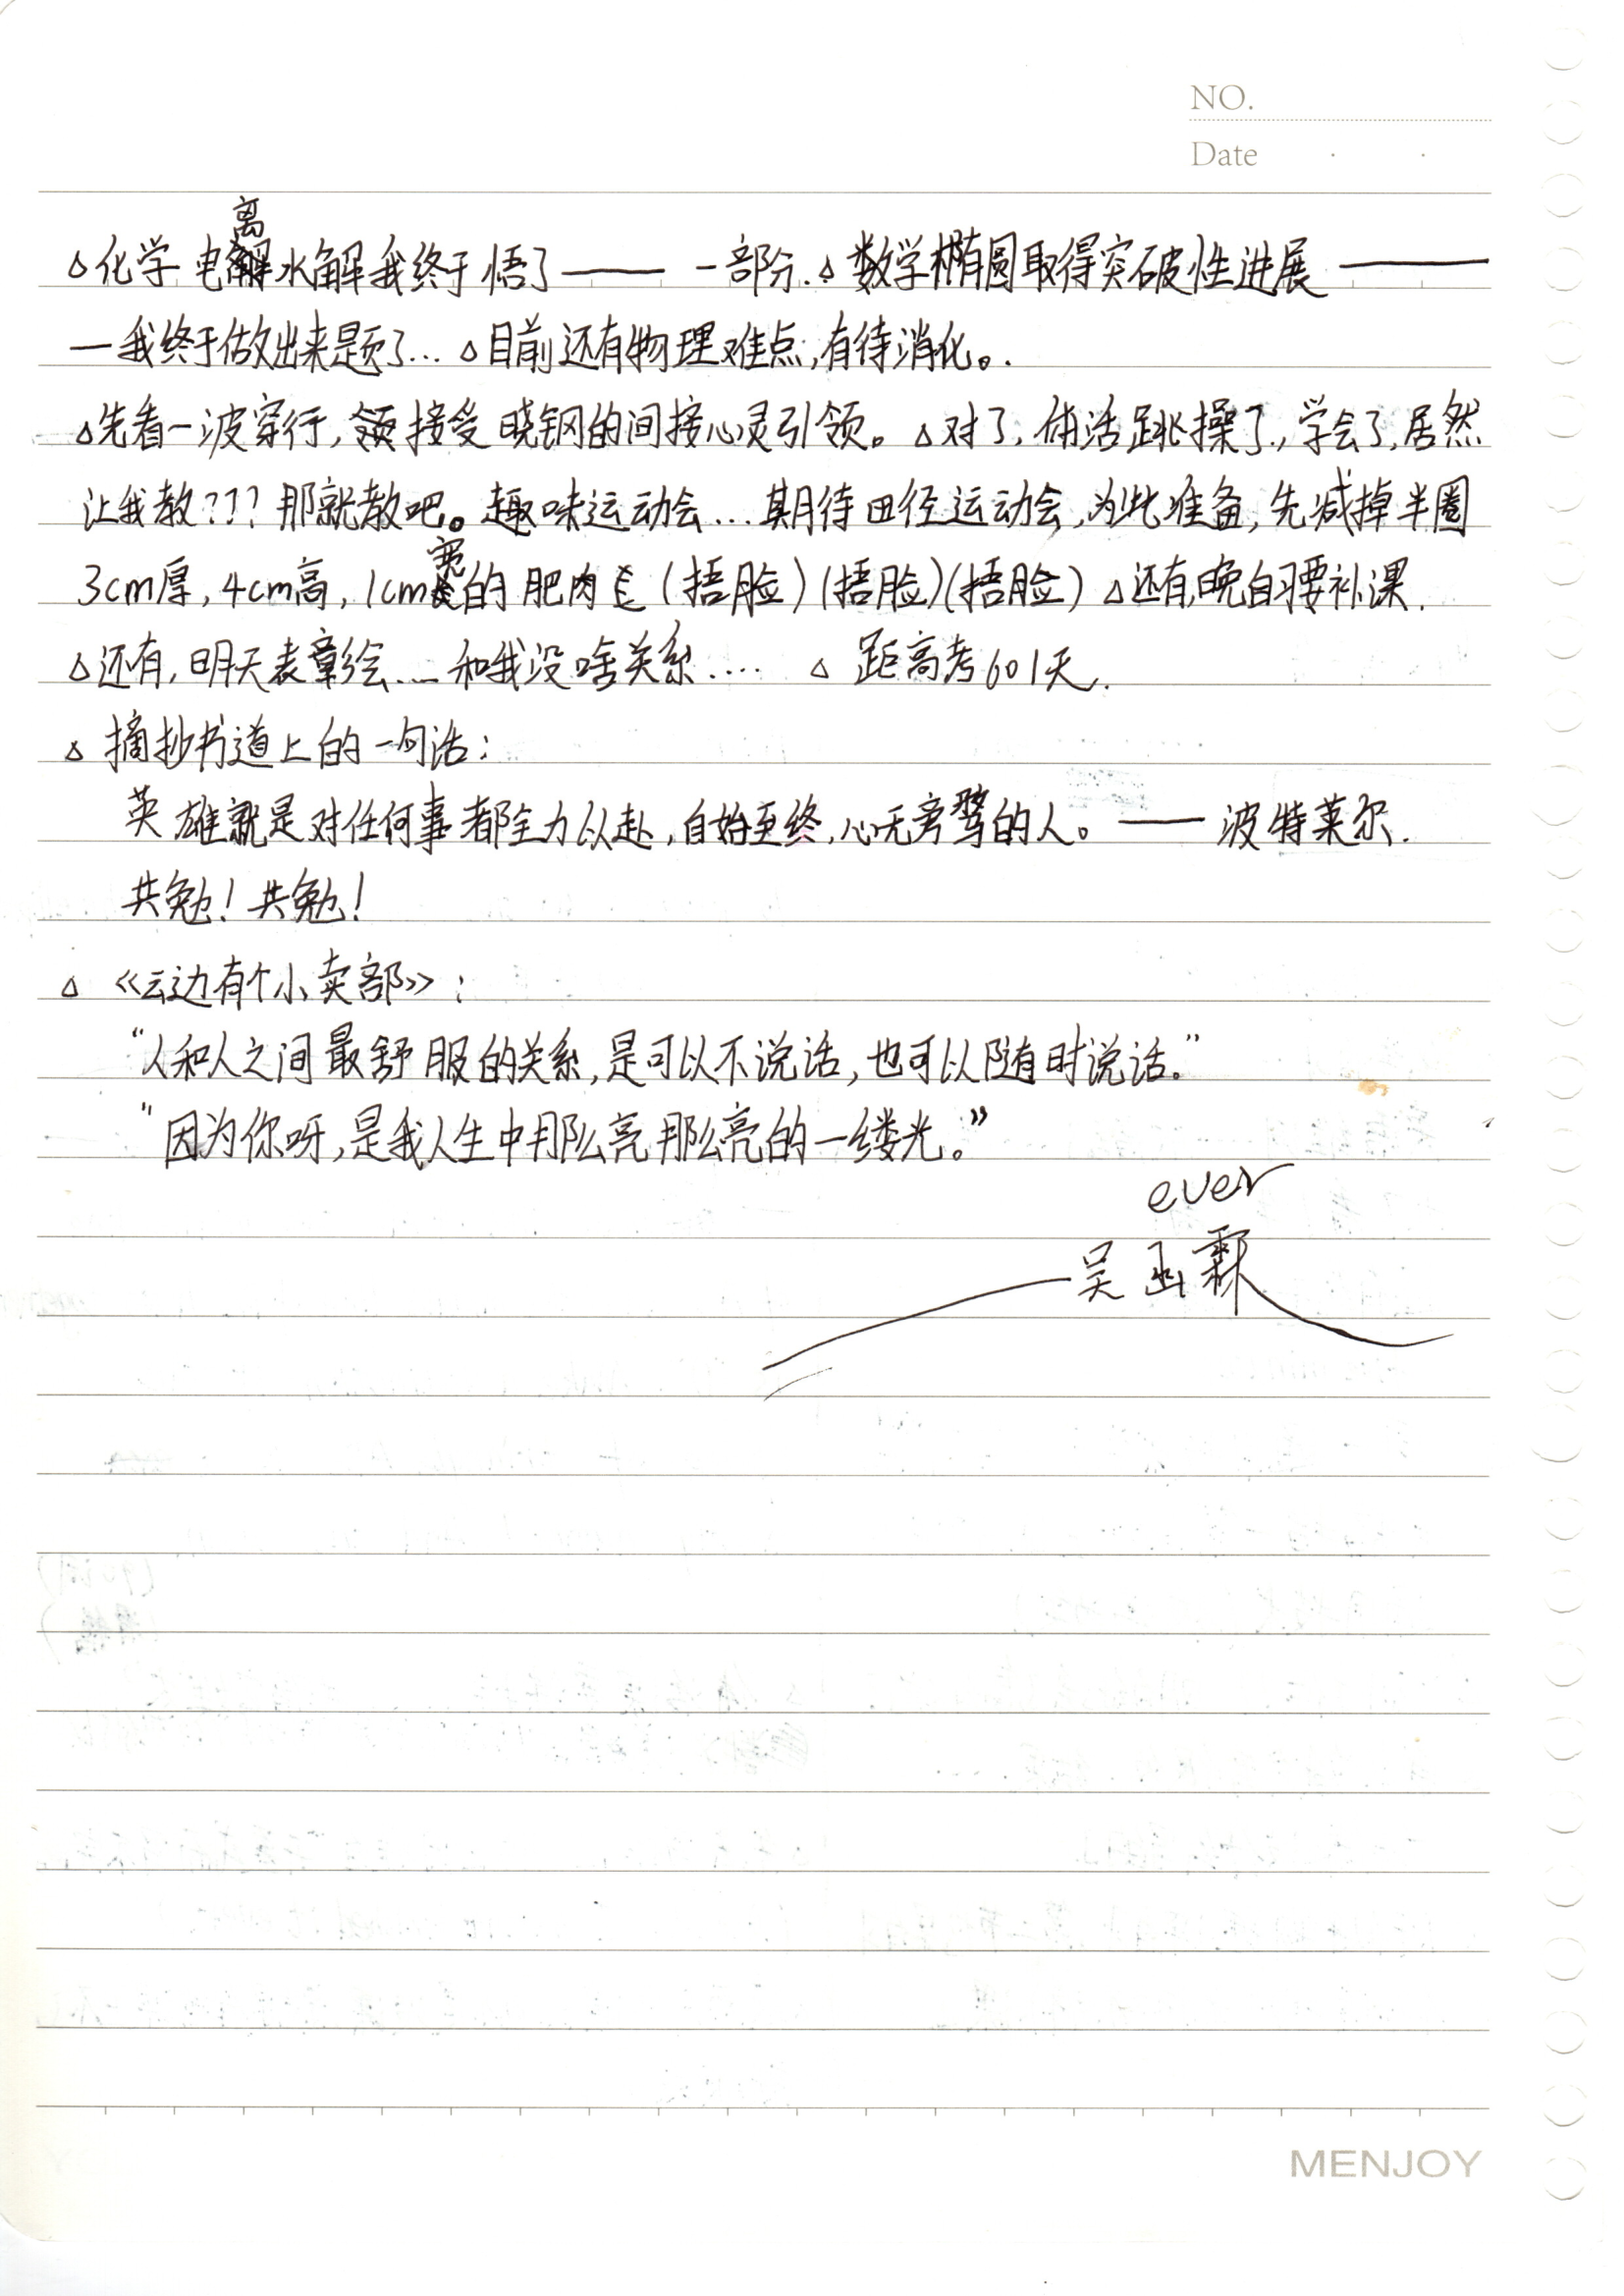 NO.
Date
离
△化学电解水解我终于悟了—— 一部分.△数学椭圆取得突破性进展——
—我终于做出来题了…△目前还有物理难点,有待消化。.
△先看一波穿行,领接受晓钢的间接心灵引领。△对了,体活跳操了,学会了,居然
让我教???那就教吧。趣味运动会…期待田径运动会,为此准备,先减掉半圈
宽
3cm厚,4cm高,1cm的肥肉(捂脸)(捂脸)(捂脸)△还有,晚自习要补课.
△还有,明天表彰会……和我没啥关系…. △ 距高考601天.
△ 摘抄书道上的一句话:
英雄就是对任何事都全力以赴,自始至终,心无旁骛的人。——波特莱尔.
共勉!共勉!
△ 《云边有个小卖部》:
“人和人之间最舒服的关系,是可以不说话,也可以随时说话。”
“因为你呀,是我人生中那么亮那么亮的一缕光。”
ever
吴函霖
MENJOY